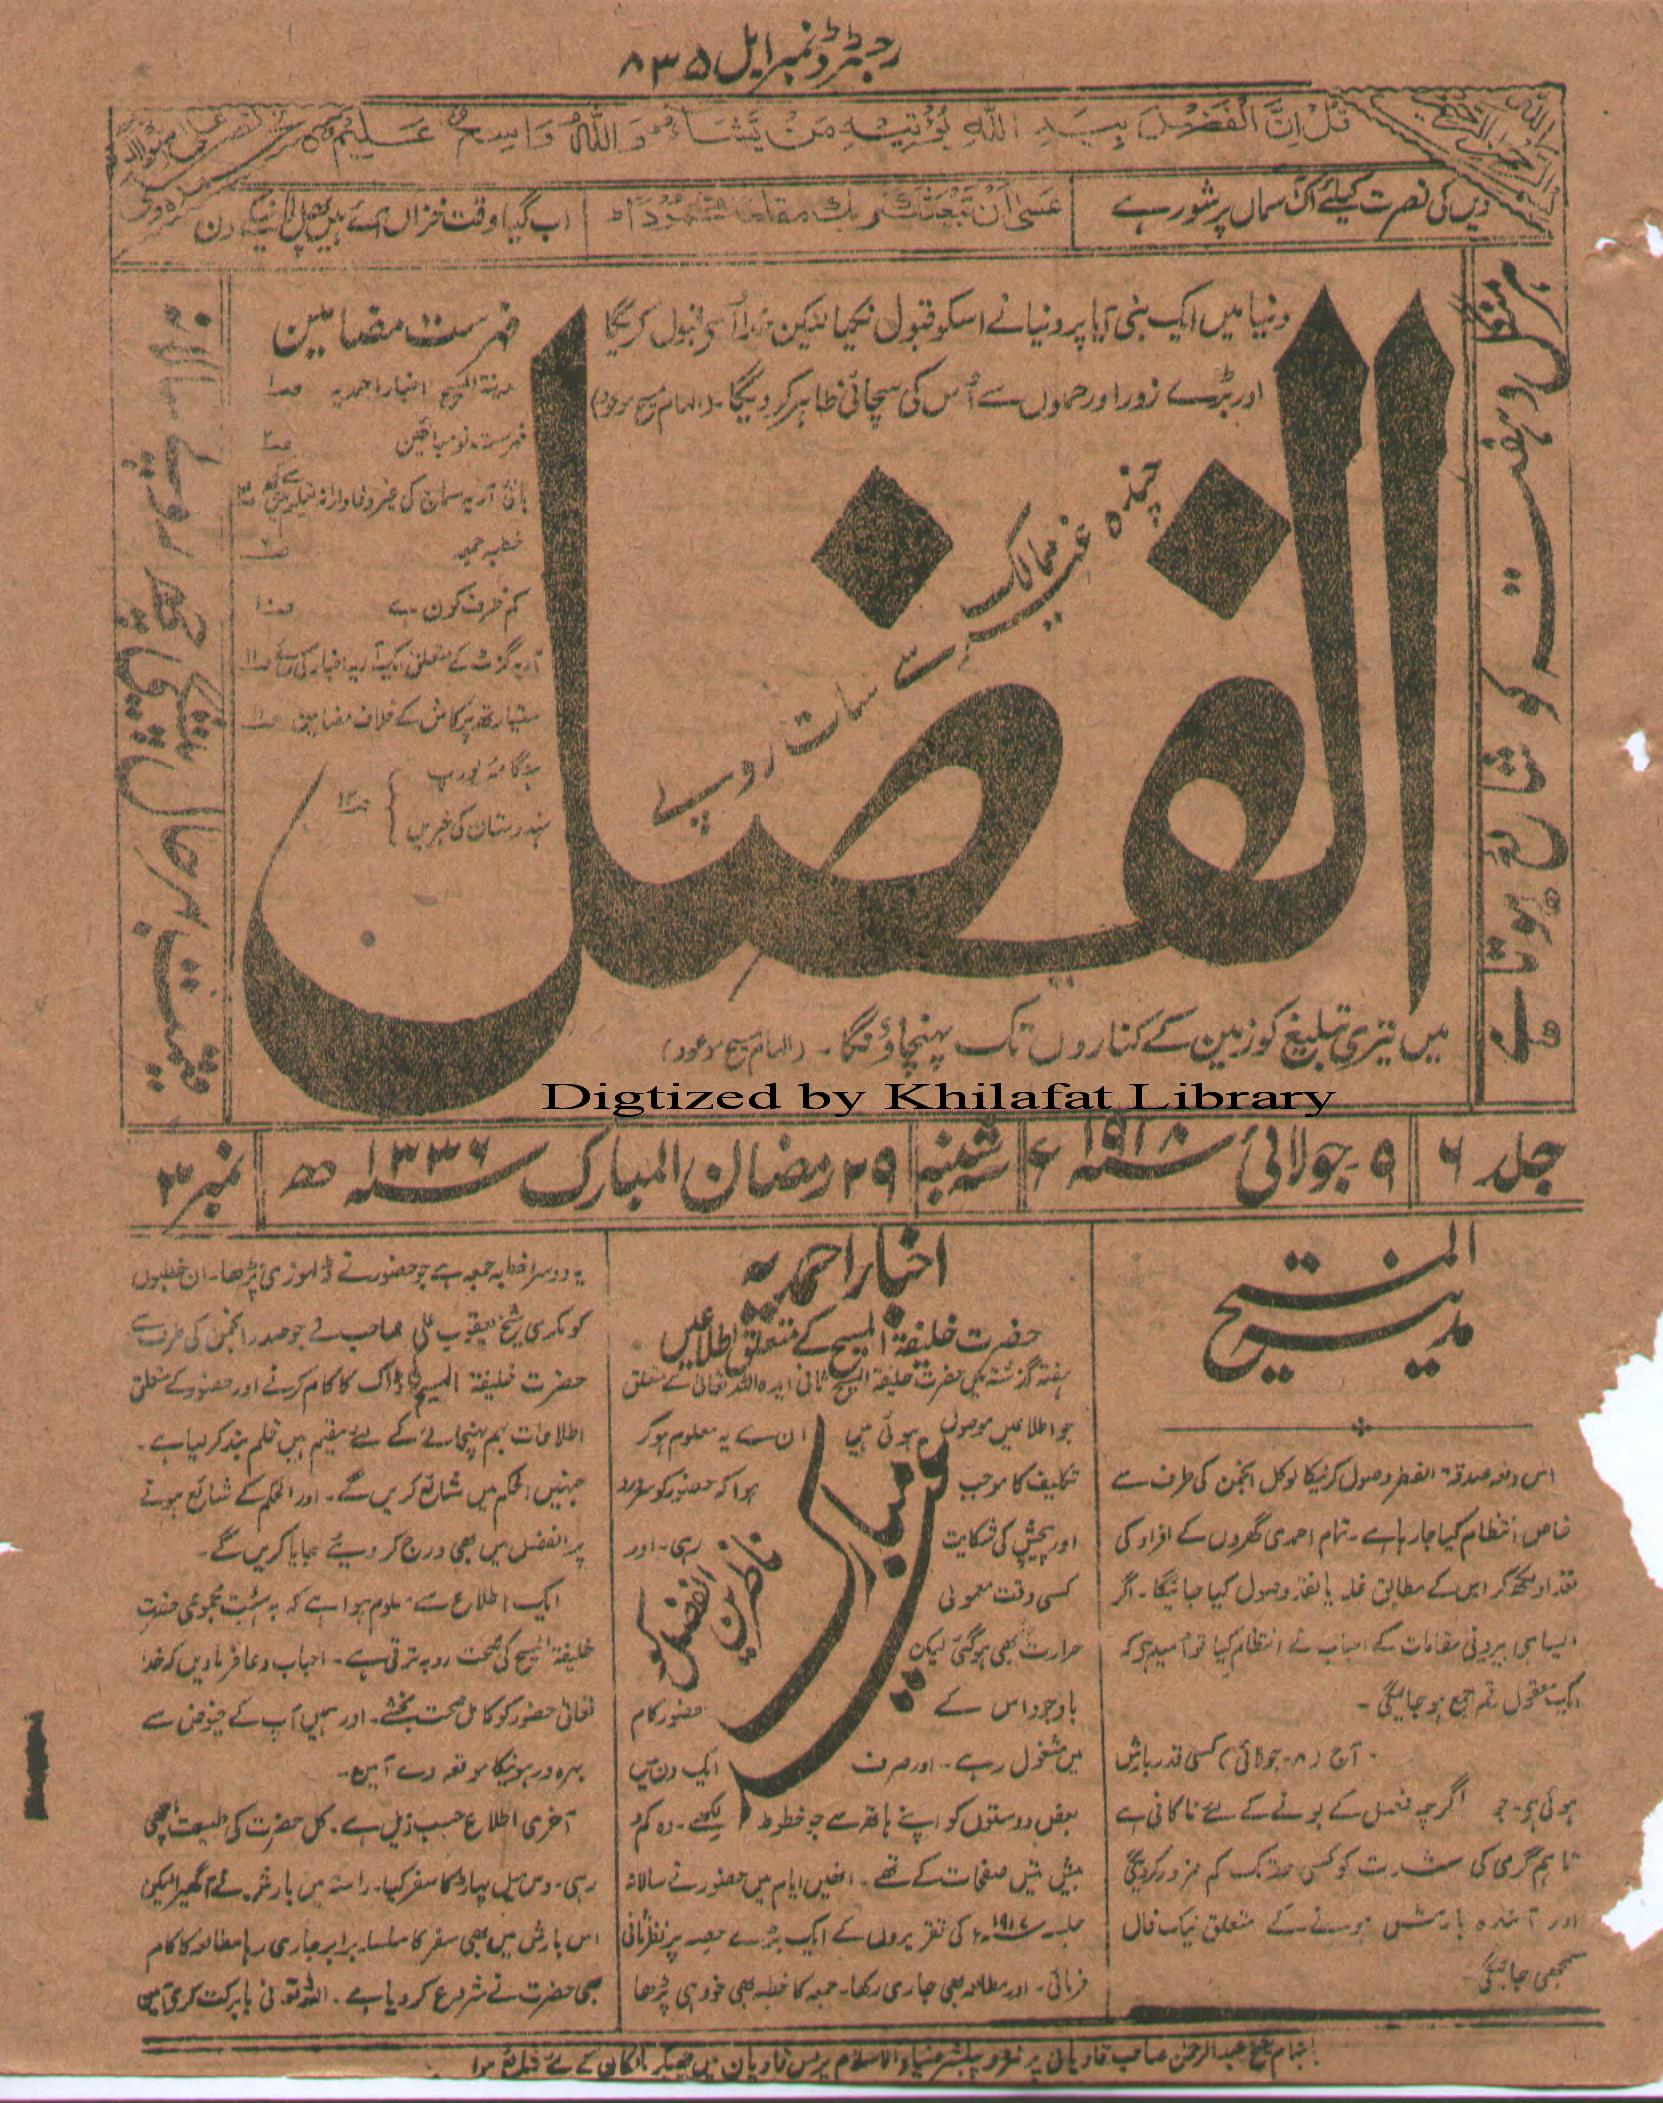 رجسٹرڈ نمبر ایل ۸۳۵
قُلْ اِنَّ الْفَضْلَ بِيَدِ اللهِ يُؤْتِيْهِ مَنْ يَّشَآءُ وَاللهُ وَاسِعٌ عَلِيْمٌ
دیں کی نصرت کیلئے اک آسماں پر شور ہے
عَسٰی اَنْ یَّبْعَثَكَ رَبُّكَ مَقَامًا مَّحْمُوْدًا
اب گیا وقت خزاں آئے ہیں پھل لانیکے دن
دنیا میں ایک نبی آیا پر دنیا نے اسکو قبول نکیا لیکن خدا اسے قبول کریگا
اور بڑے زور اور حملوں سے اُس کی سچائی ظاہر کر دیگا۔ (الہام مسیح موعود)
الفضل
چندہ غیر ممالک سے سات روپے
فہرست مضامین
مدینۃ المسیح اخبار احمدیہ ص۱
فہرست نو مبائعین ص۲
بانی آریہ سماج کی غیر وفادارانہ
خطبہ جمعہ
کم ظرف کون ہے ص۱۰
آریہ گزٹ کے متعلق ایک آریہ اخبار کی رائے ص۱۱
ستیارتھ پرکاش کے خلاف مضامین ص۱۱
ہنگامۂ یورپ
ہندوستان کی خبریں ص۱۲
میں تیری تبلیغ کو زمین کے کناروں تک پہنچاؤنگا۔ (الہام مسیح موعود)
Digtized by Khilafat Library
جلد ۶
۹۔ جولائی سنہ ۱۹۱۸ء
سہ شنبہ
۲۹ رمضان المبارک سنہ ۱۳۳۶ھ
نمبر ۳
مدینۃ المسیح
اس دفعہ صدقۃ الفطر وصول کرنیکا لوکل انجمن کی طرف سے
خاص انتظام کیا جا رہا ہے۔ تمام احمدی گھروں کے افراد کی
تعداد لکھ کر اس کے مطابق غلہ یا نقد وصول کیا جائیگا۔ اگر
ایسا ہی بیرونی مقامات کے احباب نے انتظام کیا تو امید ہے کہ
ایک معقول رقم جمع ہو جائیگی۔
آج (۸۔ جولائی) کسی قدر بارش
ہوئی ہے۔ جو اگرچہ فصل کے بونے کے لئے ناکافی ہے
تاہم گرمی کی شدت کو کسی حد تک کم ضرور کر دیگی
اور آئندہ بارش ہونے کے متعلق نیک فال
سمجھی جائیگی
اخبار احمدیہ
حضرت خلیفۃ المسیح کے متعلق اطلاعیں
ہفتہ گزشتہ میں حضرت خلیفۃ المسیح ثانی ایدہ اللہ تعالیٰ کے متعلق
جو اطلاعیں موصول ہوئی ہیں ان سے یہ معلوم ہو کر
تکلیف کا موجب ہوا کہ حضور کو سردرد
اور پیچش کی شکایت رہی۔ اور
کسی وقت معمولی
حرارت بھی ہو گئی لیکن
باوجود اس کے حضور کام
میں مشغول رہے۔ اور صرف ایک دن میں
بعض دوستوں کو اپنے ہاتھ سے جو خطوط لکھے۔ وہ کم و
بیش تیس صفحات کے تھے۔ انہیں ایام میں حضور نے سالانہ
جلسہ سنہ ۱۹۱۷ء کی تقریروں کے ایک بڑے حصہ پر نظر ثانی
فرمائی۔ اور مطالعہ بھی جاری رکھا۔ جمعہ کا خطبہ بھی خود ہی پڑھا
ناظرین الفضل کو
عید مبارک
یہ دوسرا خطبہ جمعہ ہے جو حضور نے ڈلہوزی پڑھا۔ ان خطبوں
کو مکرمی شیخ یعقوب علی صاحب نے جو صدر انجمن کی طرف سے
حضرت خلیفۃ المسیح کی ڈاک کا کام کرنے اور حضور کے متعلق
اطلاعات بہم پہنچانے کے لئے مقیم ہیں قلم بند کر لیا ہے۔
جنہیں الحکم میں شائع کریں گے۔ اور الحکم کے شائع ہونے
پر الفضل میں بھی درج کر دیئے جایا کریں گے۔
ایک اطلاع سے معلوم ہوا ہے کہ بہ ہیئت مجموعی حضرت
خلیفۃ المسیح کی صحت روبہ ترقی ہے۔ احباب دعا فرماویں کہ خدا
تعالیٰ حضور کو کامل صحت بخشے۔ اور ہمیں آپ کے فیوض سے
بہرہ ور ہونیکا موقعہ دے آمین۔
آخری اطلاع حسب ذیل ہے۔ کل حضرت کی طبیعت اچھی
رہی۔ دس میل پہاڑ کا سفر کیا۔ راستہ میں بارش نے آ گھیرا لیکن
اس بارش میں بھی سفر کا سلسلہ برابر جاری رہا مطالعہ کا کام
بھی حضرت نے شروع کر دیا ہے۔ اللہ تعالیٰ بابرکت کرے آمین